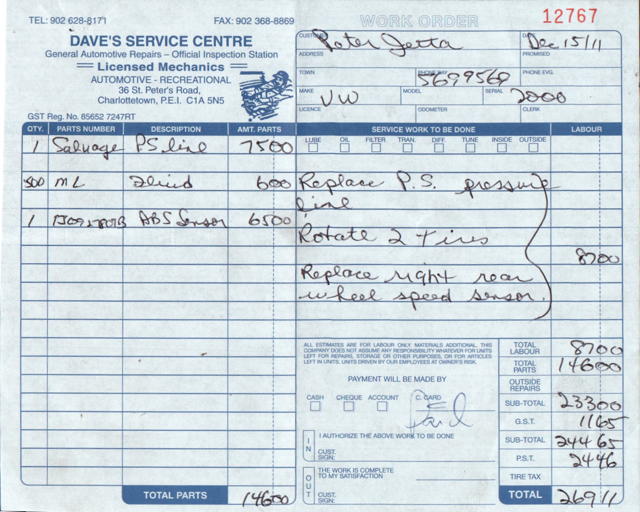 TEL: 902 628-8171 FAX: 902 368-8869 WORK ORDER 12767
DAVE'S SERVICE CENTRE
General Automotive Repairs – Official Inspection Station
Licensed Mechanics
AUTOMOTIVE - RECREATIONAL
36 St. Peter's Road,
Charlottetown, P.E.I. C1A 5N5
GST Reg. No. 85652 7247RT
Peter Jetta Dec 15/11
ADDRESS PROMISED
TOWN 5699568 PHONE EVG.
MAKE VW MODEL SERIAL 2000
LICENCE ODOMETER CLERK
QTY. PARTS NUMBER DESCRIPTION AMT. PARTS SERVICE WORK TO BE DONE LABOUR
LUBE OIL FILTER TRAN. DIFF. TUNE INSIDE OUTSIDE
1 Salvage P.S line 7500
500 ML 600 Replace P.S. pressure
line
1 ABS Sensor 6500
Rotate 2 tires
8700
Replace right rear
wheel speed sensor.
ALL ESTIMATES ARE FOR LABOUR ONLY, MATERIALS ADDITIONAL. THIS
COMPANY DOES NOT ASSUME ANY RESPONSIBILITY WHATEVER FOR UNITS
LEFT FOR REPAIRS, STORAGE OR OTHER PURPOSES, OR FOR ARTICLES
LEFT IN UNITS. UNITS DRIVEN BY OUR EMPLOYEES AT OWNER'S RISK.
TOTAL LABOUR 8700
TOTAL PARTS 14600
OUTSIDE REPAIRS
PAYMENT WILL BE MADE BY
CASH CHEQUE ACCOUNT C. CARD
SUB-TOTAL 23300
Paid
G.S.T. 1165
IN I AUTHORIZE THE ABOVE WORK TO BE DONE
CUST. SIGN:
SUB-TOTAL 24465
P.S.T. 2446
OUT THE WORK IS COMPLETE
TO MY SATISFACTION
CUST. SIGN:
TIRE TAX
TOTAL PARTS 14600 TOTAL 26911